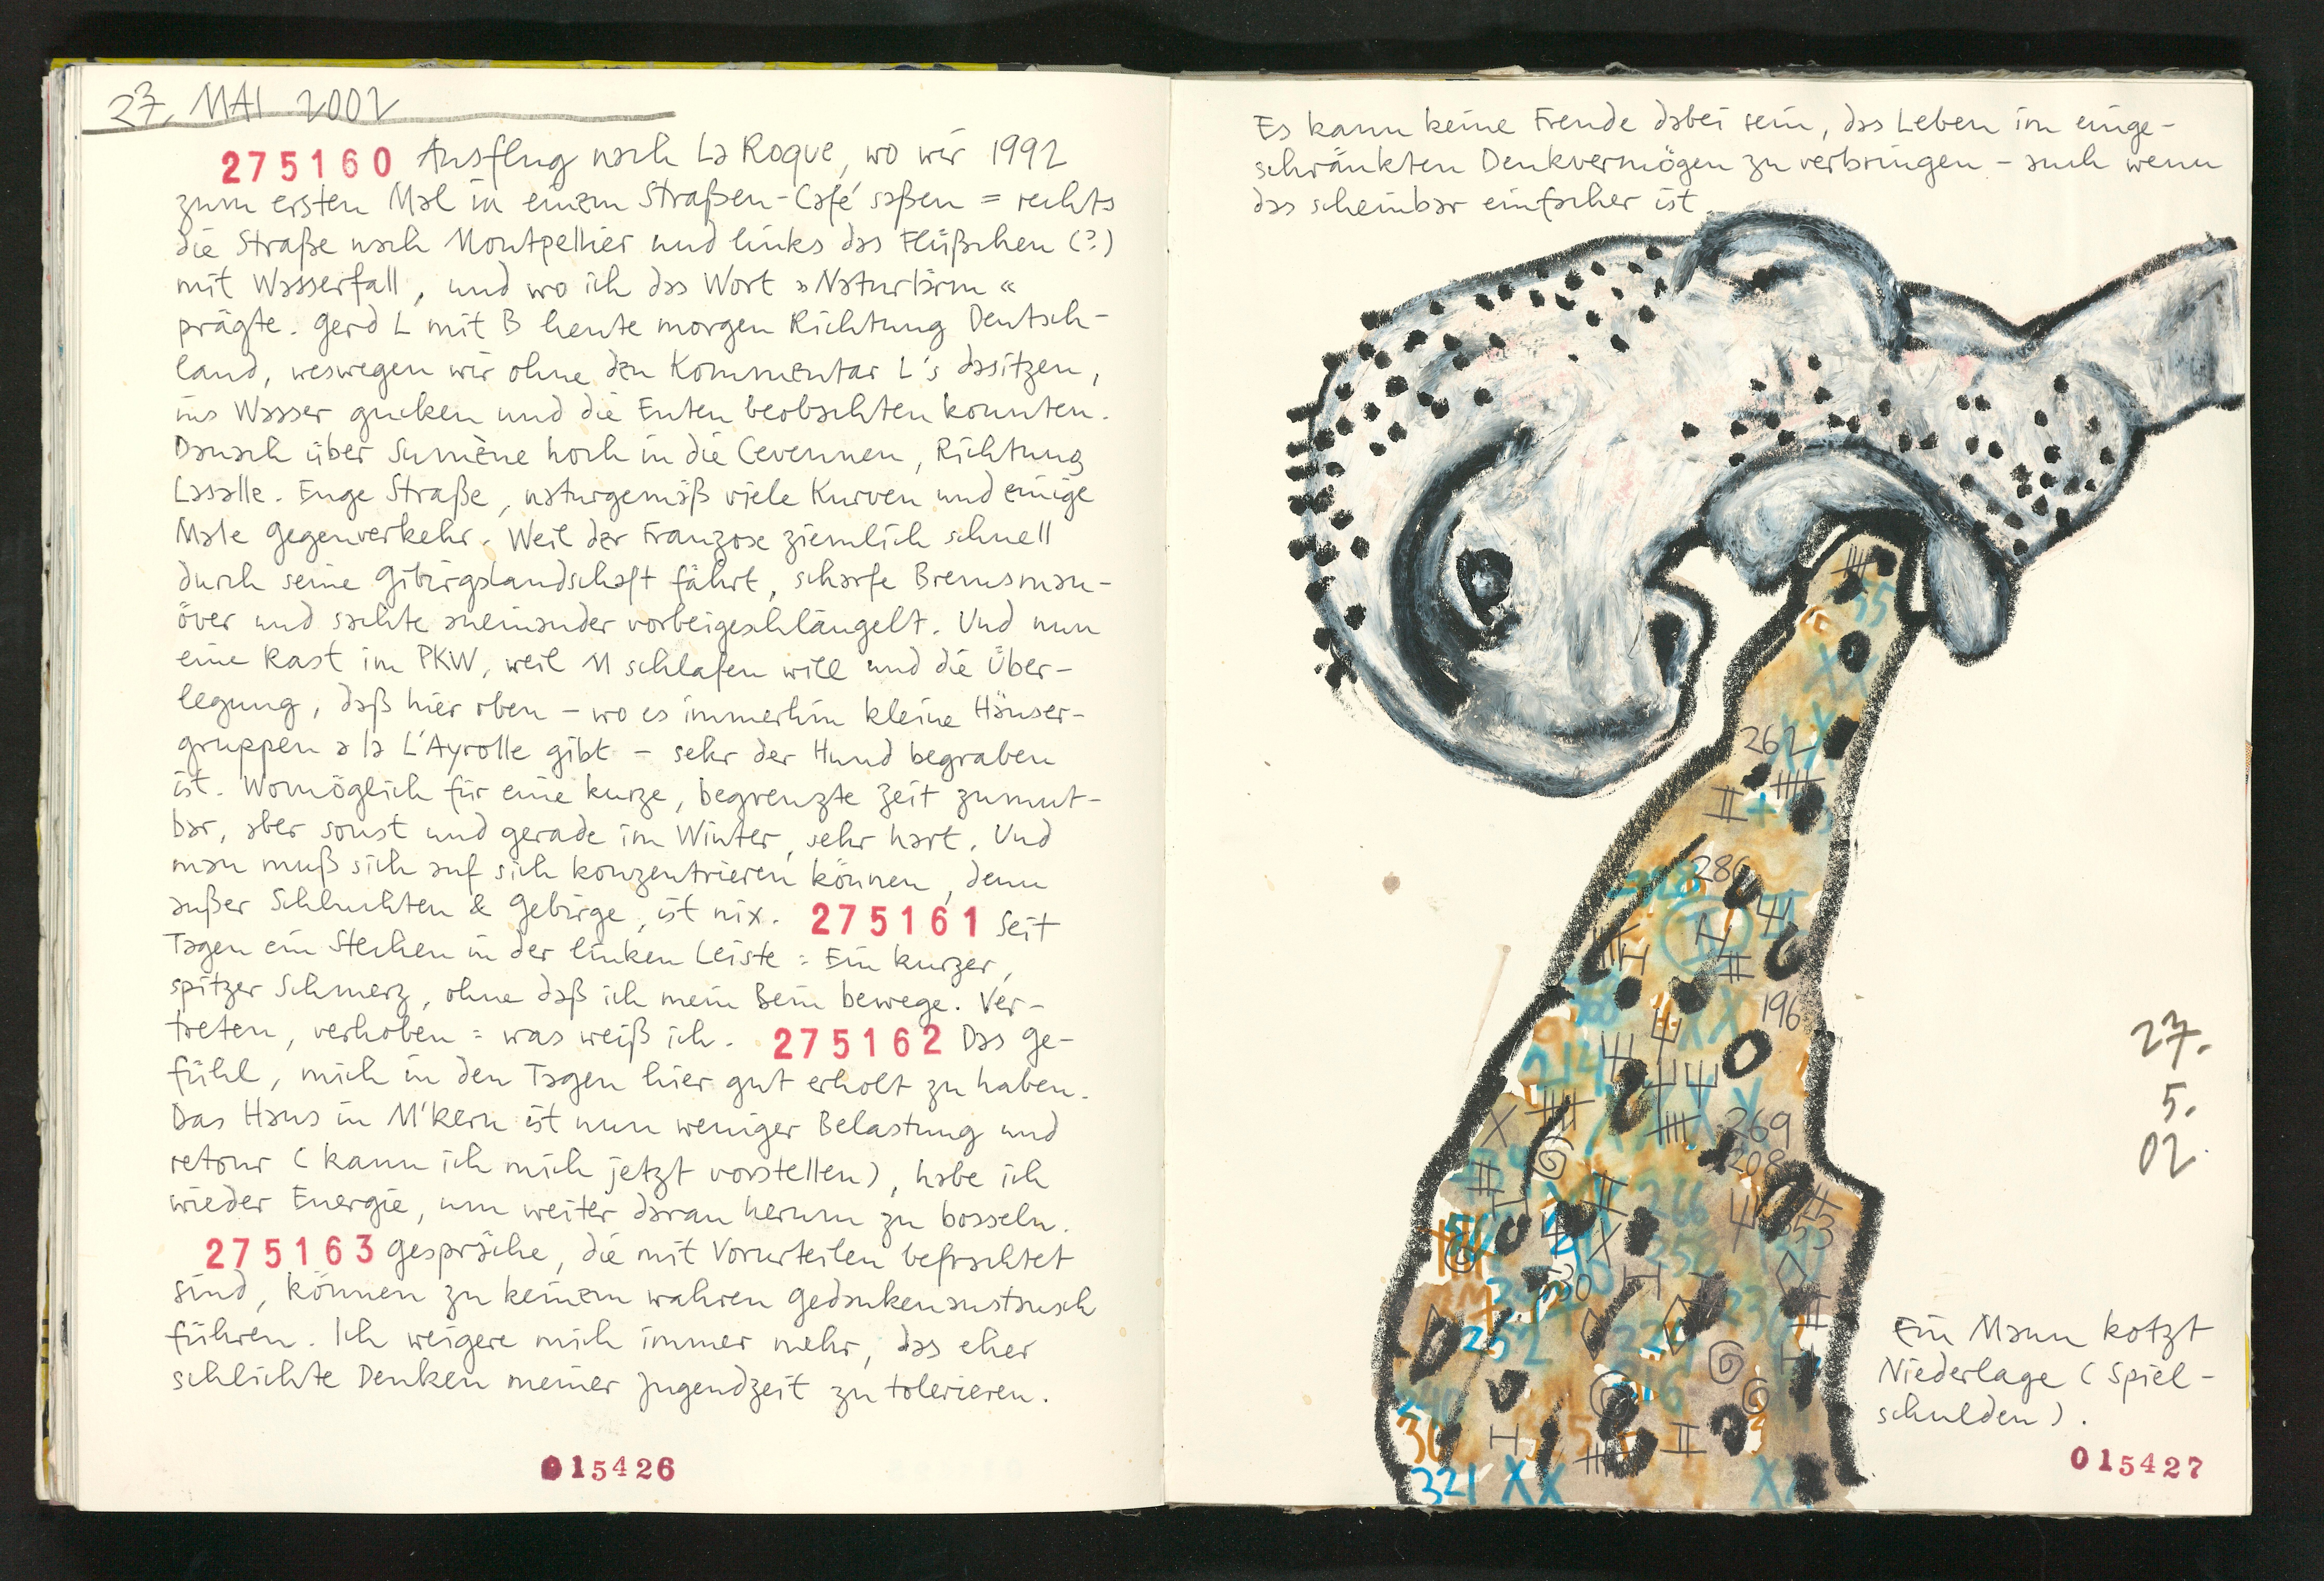 27. MAI 2002
275160 Ausflug nach La Roque, wo wir 1992
zum ersten Mal in einem Straßen-Café saßen = rechts
die Straße nach Montpellier und links das Flüßchen (?)
mit Wasserfall, und wo ich das Wort »Naturlärm«
prägte. Gerd L mit B heute morgen Richtung Deutsch-
land, weswegen wir ohne den Kommentar L's dasitzen,
ins Wasser gucken und die Enten beobachten konnten.
Danach über Sumène hoch in die Cevennen, Richtung
Lasalle. Enge Straße, naturgemäß viele Kurven und einige
Male Gegenverkehr. Weil der Franzose ziemlich schnell
durch seine Gibirgslandschaft fährt, scharfe Bremsman-
över und sachte aneinander vorbeigeschlängelt. Und nun
eine Rast im PKW, weil M schlafen will und die Über-
legung, daß hier oben – wo es immerhin kleine Häuser-
gruppen a la L'Ayrolle gibt – sehr der Hund begraben
ist. Womöglich für eine kurze, begrenzte Zeit zumut-
bar, aber sonst und gerade im Winter, sehr hart. Und
man muß sich auf sich konzentrieren können, denn
außer Schluchten & Gebirge, ist nix. 275161 Seit
Tagen ein Stechen in der linken Leiste = Ein kurzer,
spitzer Schmerz, ohne daß ich mein Bein bewege. Ver-
treten, verhoben = was weiß ich. 275162 Das Ge-
fühl, mich in den Tagen hier gut erholt zu haben.
Das Haus in M'kern ist nun weniger Belastung und
retour (kann ich mich jetzt vorstellen), habe ich
wieder Energie, um weiter daran herum zu bosseln.
275163 Gespräche, die mit Vorurteilen befrachtet
sind, können zu keinem wahren Gedankenaustausch
führen. Ich weigere mich immer mehr, das eher
schlichte Denken meiner Jugendzeit zu tolerieren.
015426
Es kann keine Freude dabei sein, das Leben im einge-
schränkten Denkvermögen zu verbringen – auch wenn
das scheinbar einfacher ist.
55
XX
262 XX
286
328
196
XX
214
269
208
266
353
358
30
252
229
236
216
240
30
321 XX
XX
27.
5.
02.
Ein Mann kotzt
Niederlage (Spiel-
schulden).
015427